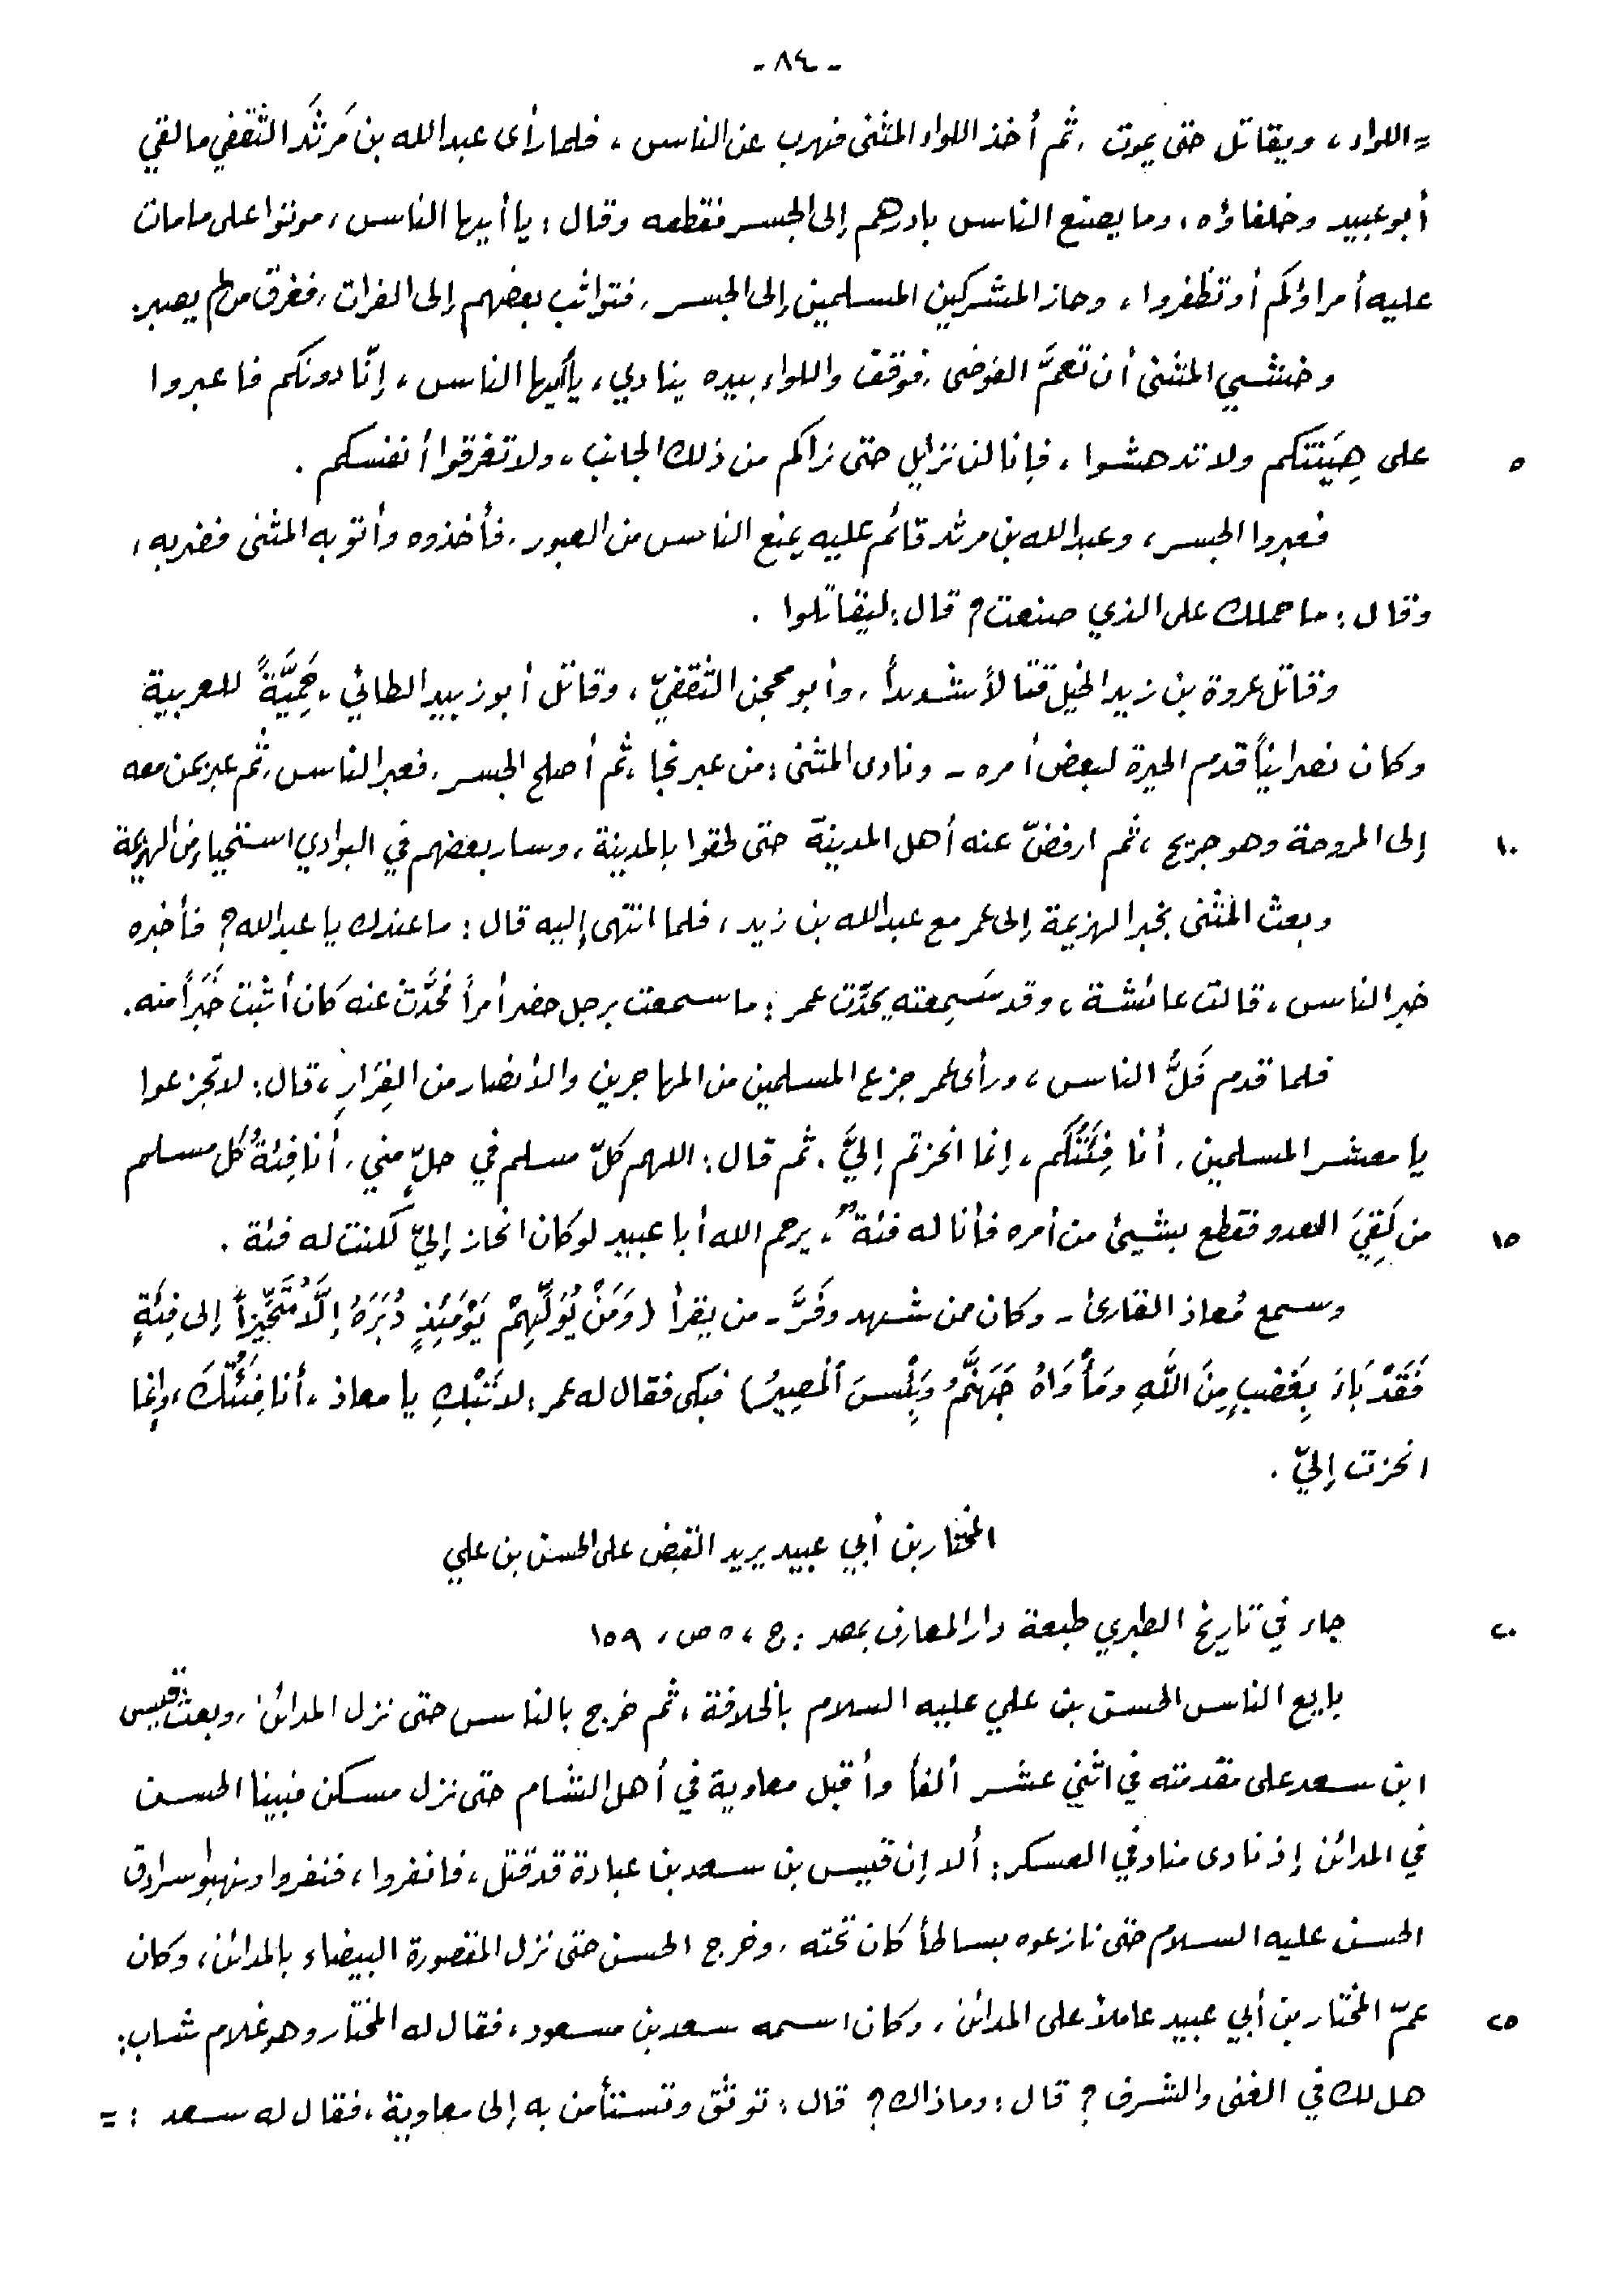 - ٨٤ -
= اللواء، ويقاتل حتى يموت، ثم أخذ اللواء المثنى فهرب عن الناس، فلما رأى عبدالله بن مَرثَد الثقفي مالقي
أبو عبيد وخلفاؤه، وما يصنع الناس بادرهم إلى الجسر فقطعه وقال: يا أيها الناس، موتوا على ما مات
عليه أمراؤكم أو تظفروا، وحاز المشركين المسلمين إلى الجسر، فتواثب بعضهم إلى الفرات، فغرق من لم يصبر.
وخشي المثنى أن تعمَّ الفوضى، فوقف واللواء بيده ينادي، يا أيها الناس، إنّا دونكم فاعبروا
٥ على هِيَنتكم ولا تدهشوا، فإنا لن نزايل حتى نراكم من ذلك الجانب، ولا تغرقوا أنفسكم .
فعبروا الجسر، وعبدالله بن مرثد قائم عليه يمنع الناس من العبور، فأخذوه وأتو به المثنى فضربه،
وقال: ما حملك على الذي صنعت؟ قال: ليقاتلوا .
وقاتل عروة بن زيد الخيل قتالاً شديداً، وأبو محجن الثقفيّ، وقاتل أبو زبيد الطائي، حَمِيَّةً للعربية
وكان نصرانياً قدم الحيرة لبعض أمره - ونادى المثنى: من عبر نجا، ثم أصلح الجسر، فعبر الناس، ثم عبر بمن معه
١٠ إلى المروحة وهو جريح، ثم ارفضّ عنه أهل المدينة حتى لحقوا بالمدينة، وسار بعضهم في البوادي استحياءً من الهزيمة
وبعث المثنى بخبر الهزيمة إلى عمر مع عبدالله بن زيد، فلما انتهى إليه قال: ما عندك يا عبدالله؟ فأخبره
خبر الناس، قالت عائشة، وقد سَمِعته يحدّث عمر: ما سمعت برجل حضر أمراً فحَدَّث عنه كان أثبت خَبَراً منه.
فلما قدم فَلُّ الناس، ورأى عمر جزع المسلمين من المهاجرين والأنصار من الفِرَارِ، قال: لا تجزعوا
يا معشر المسلمين، أنا فِئَتُكم، إنما انحزتم إليَّ. ثم قال: اللهم كلّ مسلم في حلٍّ مني، أنا فِئةُ كل مسلم
١٥ من لَقِيَ العدو فقطع بشيئ من أمره فأنا له فئةٌ، يرحم الله أبا عبيد لو كان انحاز إليّ لكنت له فئة .
وسمع مُعاذ القارئ - وكان ممن شهد وفَرَّ - من يقرأ (وَمَنْ يُوَلِّهِمْ يَوْمَئِذٍ دُبُرَهُ إلَّا مُتَحَيِّزاً إلى فِئَةٍ
فَقَدْ بَاءَ بِغَضَبٍ مِنَ اللَّهِ ومَأْوَاهُ جَهَنَّمُ وَبِئْسَ الْمصِيرُ) فبكى فقال له عمر: لا تَبْكِ يا معاذ، أنا فِئَتُكَ، وإنما
انحزت إليّ .
المختار بن أبي عبيد يريد القبض على الحسن بن علي
٢٠ جاء في تاريخ الطبري طبعة دار المعارف بمصر: ج، ٥ ص، ١٥٩
بايع الناس الحسن بن علي عليه السلام بالخلافة، ثم خرج بالناس حتى نزل المدائن، وبعث قيس
ابن سعد على مقدمته في اثني عشر ألفاً وأقبل معاوية في أهل الشام حتى نزل مسكن فبينا الحسن
في المدائن إذ نادى مناد في العسكر: ألا إن قيس بن سعد بن عبادة قد قتل، فانفروا، فنفروا ونهبوا سرادق
الحسن عليه السلام حتى نازعوه بساطاً كان تحته، وخرج الحسن حتى نزل المقصورة البيضاء بالمدائن، وكان
٢٥ عمّ المختار بن أبي عبيد عاملاً على المدائن، وكان اسمه سعد بن مسعود، فقال له المختار وهو غلام شاب:
هل لك في الغنى والشرف؟ قال: وما ذاك؟ قال: توثق وتستأمن به إلى معاوية، فقال له سعد : =